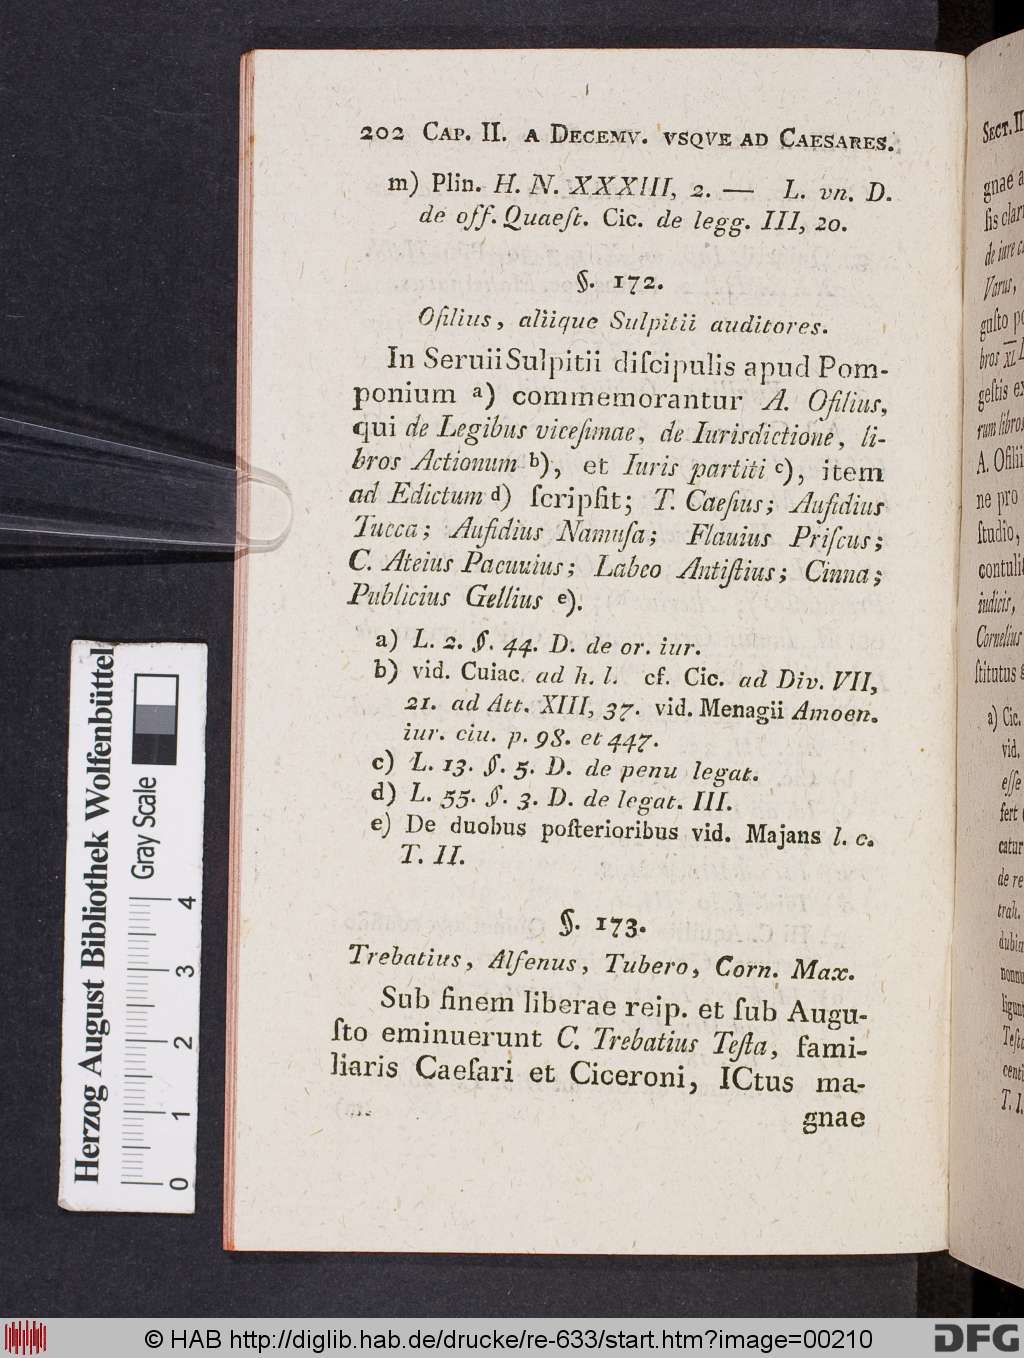 202 CAP. II. A DECEMV. VSQVE AD CAESARES.
m) Plin. H. N. XXXIII, 2. — L. vn. D.
de off. Quaeſt. Cic. de legg. III, 20.
§. 172.
Ofilius, aliique Sulpitii auditores.
In Seruii Sulpitii diſcipulis apud Pom-
ponium a) commemorantur A. Ofilius,
qui de Legibus viceſimae, de Iurisdictione, li-
bros Actionum b), et Iuris partiti c), item
ad Edictum d) ſcripſit; T. Caeſius; Aufidius
Tucca; Aufidius Namuſa; Flauius Priſcus;
C. Ateius Pacuuius; Labeo Antiſtius; Cinna;
Publicius Gellius e).
a) L. 2. §. 44. D. de or. iur.
b) vid. Cuiac. ad h. l. cf. Cic. ad Div. VII,
21. ad Att. XIII, 37. vid. Menagii Amoen.
iur. ciu. p. 98. et 447.
c) L. 13. §. 5. D. de penu legat.
d) L. 55. §. 3. D. de legat. III.
e) De duobus poſterioribus vid. Majans l. c.
T. II.
§. 173.
Trebatius, Alfenus, Tubero, Corn. Max.
Sub finem liberae reip. et ſub Augu-
ſto eminuerunt C. Trebatius Teſta, fami-
liaris Caeſari et Ciceroni, ICtus ma-
gnae
SECT. II
gnae a
ſis clar
de iure c
Varus,
guſto po
bros XL
geſtis ex
rum libros
A. Ofilii
ne pro
ſtudio,
contulit
iudicis,
Cornelius
ſtitutus
a) Cic.
vid.
eſſe
fert
catur
de re
trah.
dubia
nonnu
ligunt
Teſta
centi
T. I.
Herzog August Bibliothek Wolfenbüttel
Gray Scale
0 1 2 3 4
© HAB http://diglib.hab.de/drucke/re-633/start.htm?image=00210
DFG